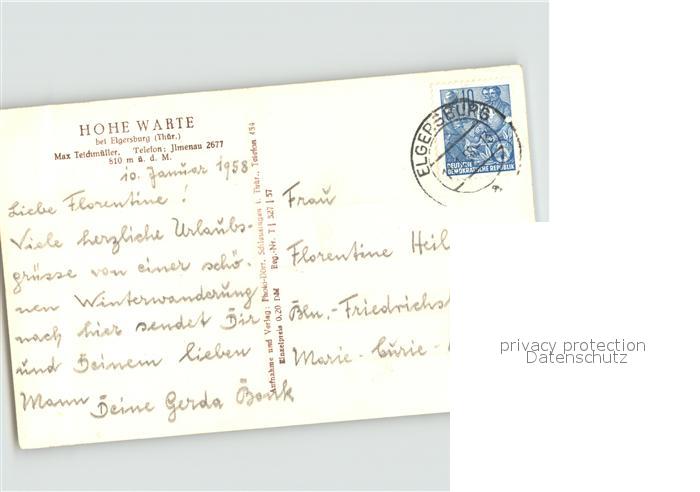 HOHE WARTE
bei Elgersburg (Thür.)
Max Teichmüller, Telefon: Jlmenau 2677
810 m ü. d. M.
10. Januar 1958
Liebe Florentine!
Viele herzliche Urlaubs-
grüsse von einer schö-
nen Winterwanderung
nach hier sendet Dir
und Deinem lieben
Mann Deine Gerda Bonk
Aufnahme und Verlag: Photo-Dörr, Schleusingen i. Thür., Telefon 454
Einzelpreis 0,20 DM Reg.-Nr. T| 527|57
10
DEUTSCHE
DEMOKRATISCHE REPUBLIK
ELGERSBURG
Frau
Florentine Heil
Bln.-Friedrichs
Marie-Curie-
privacy protection
Datenschutz